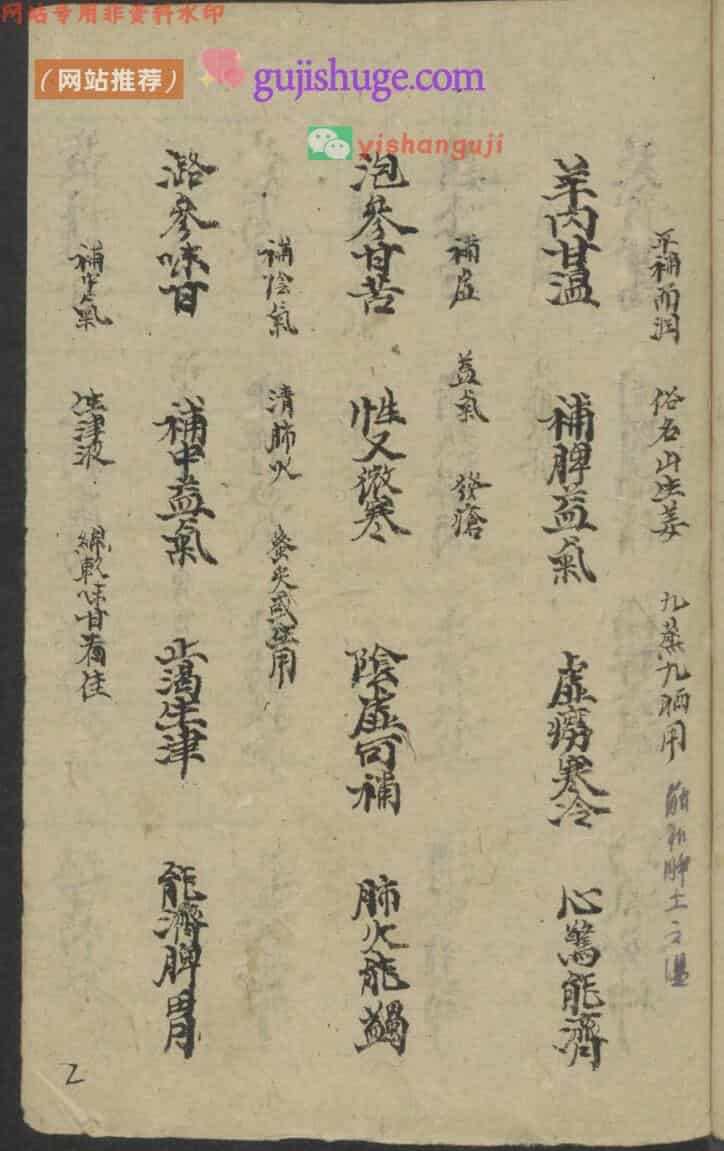 网站专用非资料水印
（网站推荐）
gujishuge.com
yishanguji
平補而潤 俗名山生姜 九蒸九晒用
羊肉甘温 補脾益氣 虛癆寒冷 心驚能濟
補虛 益氣 發瘡
泡參甘苦 性又微寒 陰虛可補 肺火能蠲
補陰氣 清肺火 蜜炙或生用
潞參味甘 補中益氣 止渴生津 能濟脾胃
補中氣 生津液 綿軟味甘者佳
2